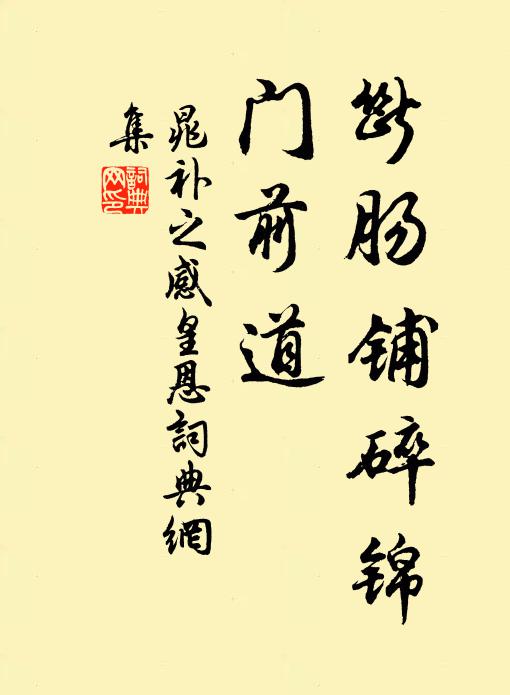 斷肠铺碎锦
门前道
晁补之感皇恩詞典網
集
詞典网印